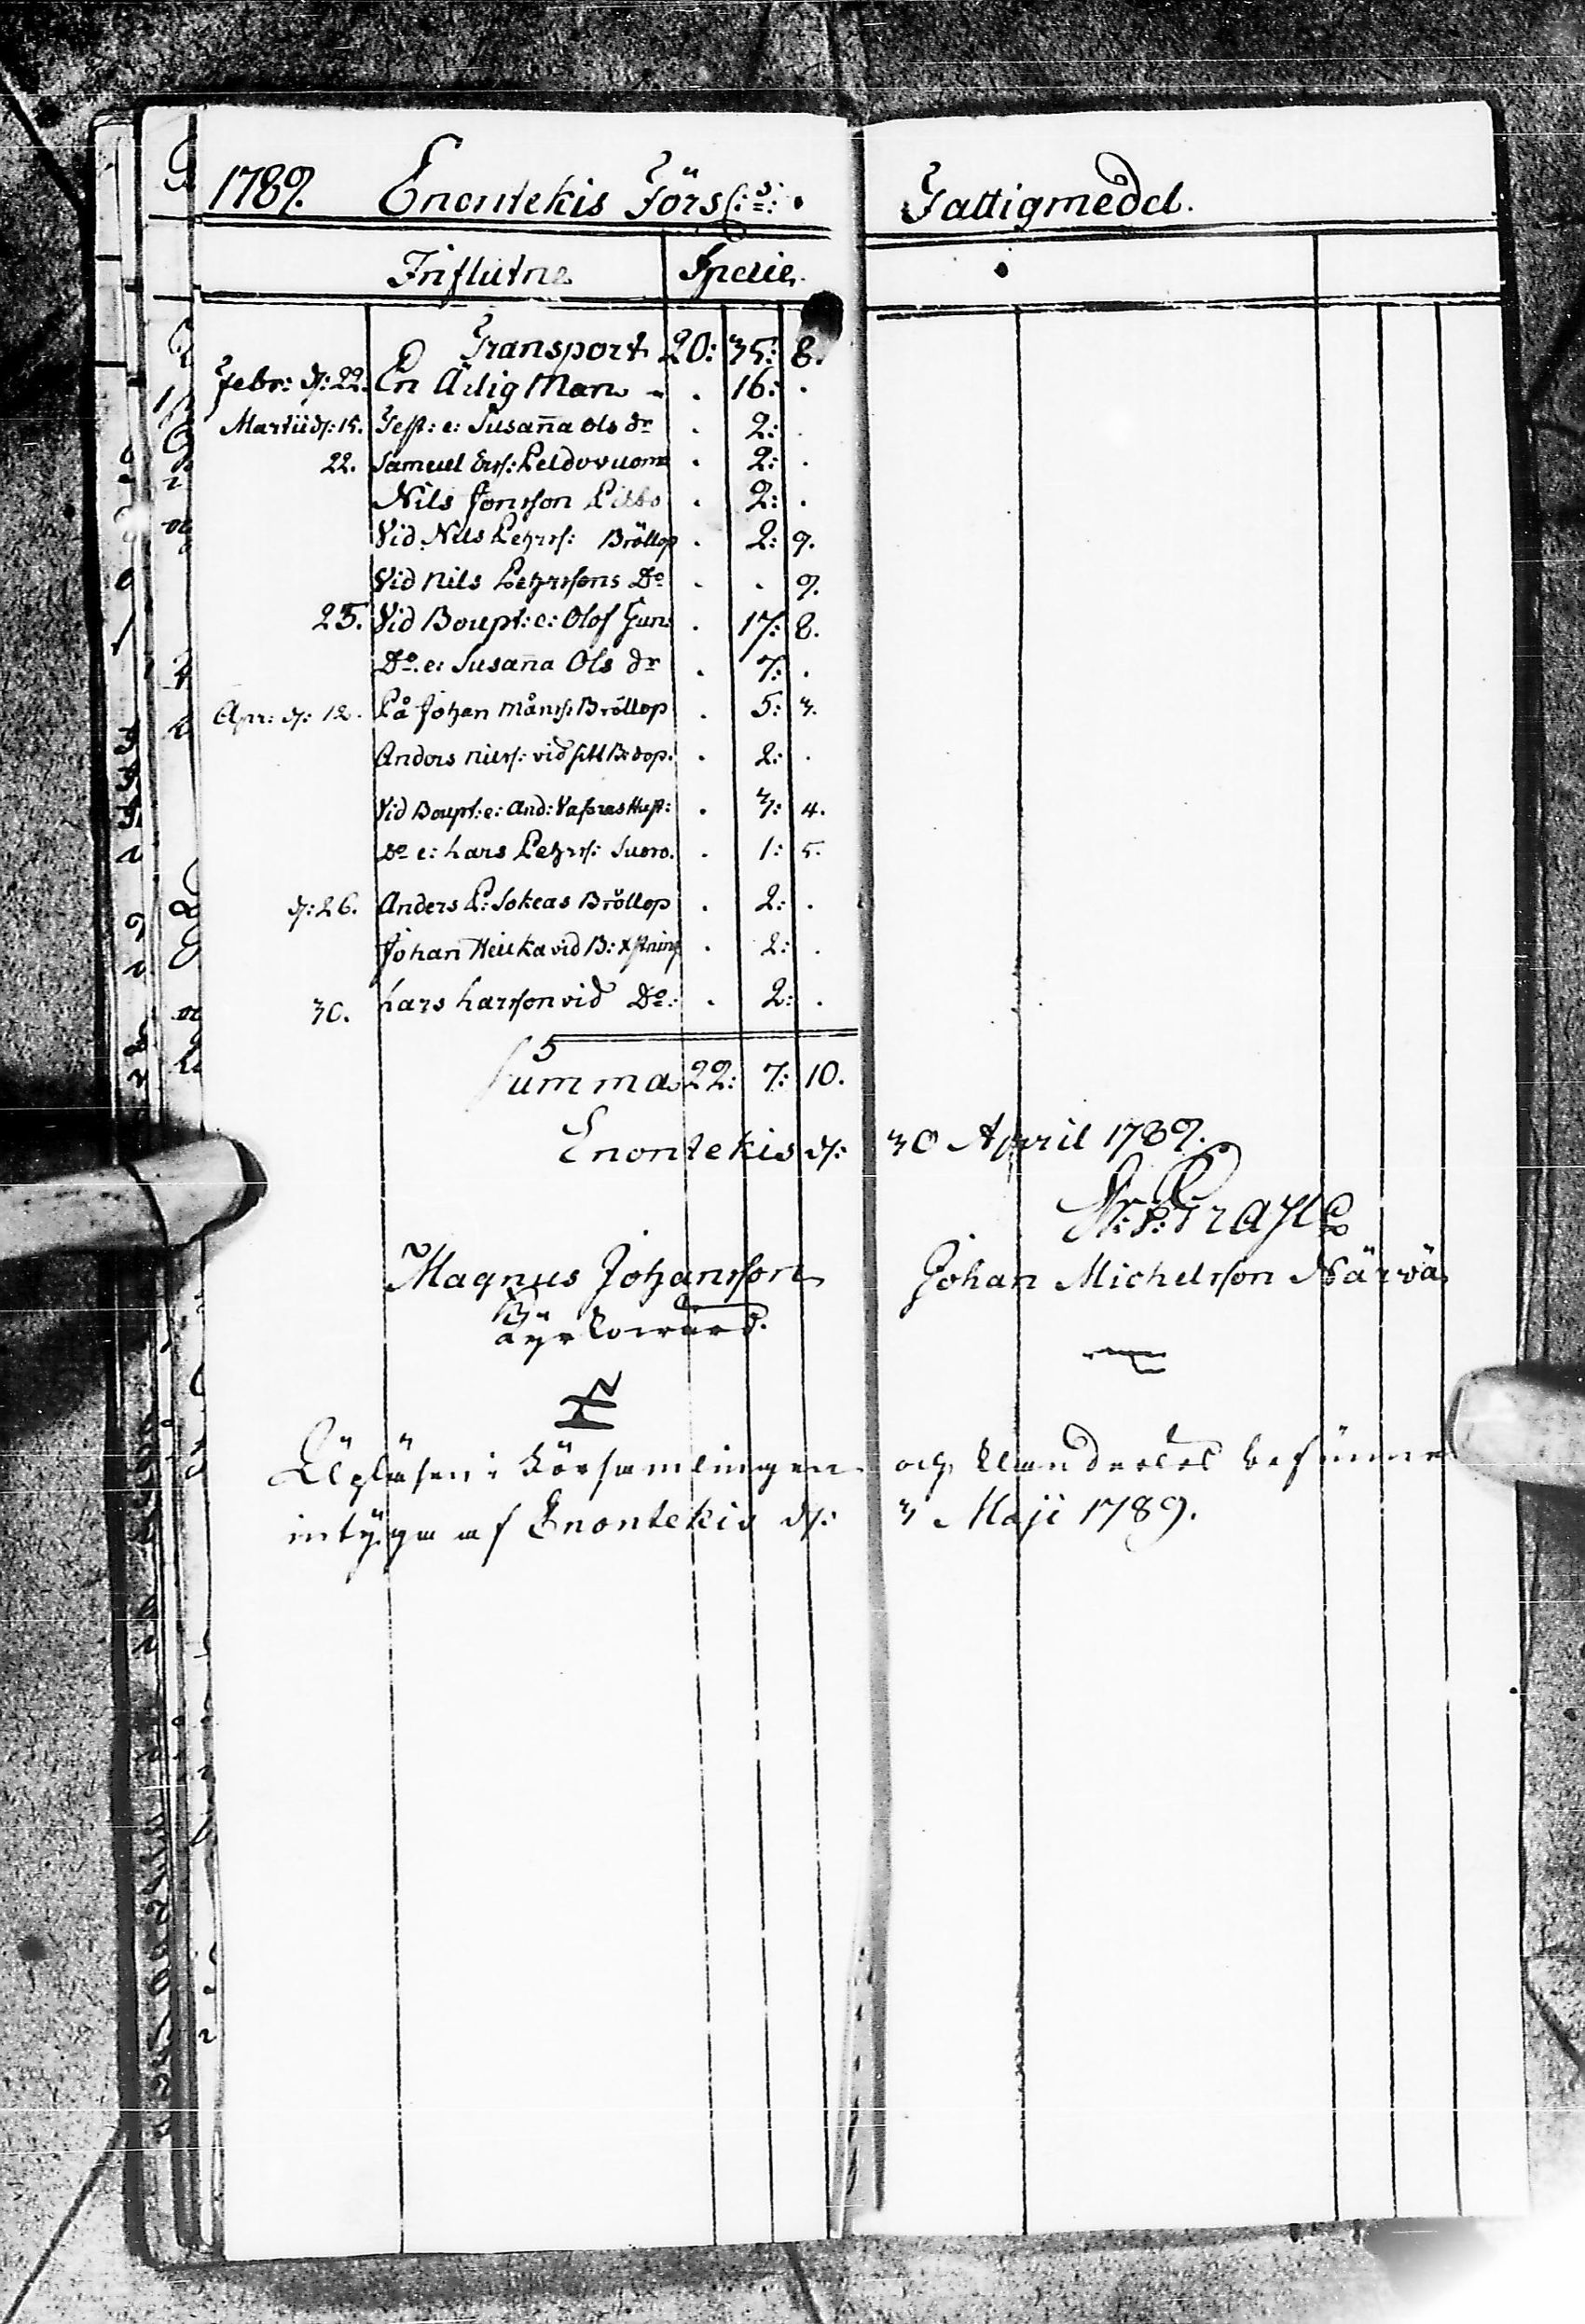 1789. Enontekis Förs:s: Fattigmedel.
Influtne Specie.
Transport 20: 35: 8.
Febr: d: 22. En Ädig Man . 16: .
Martii d: 15. Test: e: Susan̄a Ols dr . 2: .
22. Samuel Ers: Peldovuoma . 2: .
Nils Jonsson . 2: .
Vid Nils Pehrss: Bröllop . 2: 9.
Vid Nils Pehrssons Do . . 9.
25. Vid Boupt: e: Olof . 17: 8.
Do. e: Susan̄a Ols dr . 7: .
Apr: d: 12. På Johan Månss: Bröllop . 5: 3.
Anders Nilss: vid sitt B:dop. . 2: .
Vid Boupt: e: And: Hust: . 3: 4.
Do e: Lars Pehrss: . 1: 5.
d: 26. Anders P: Sokeas Bröllop . 2: .
Johan vid B: . 2: .
30. Lars Larsson vid Do: . 2: .
Summa 22: 7: 10.
Enontekis d: 30 April 1789.
Magnus Johansson Johan Michelsson Närvä
Kyrkovärd.
Upläsen i Församlingen och befunne
intyga af Enontekis d: 3 Maji 1789.